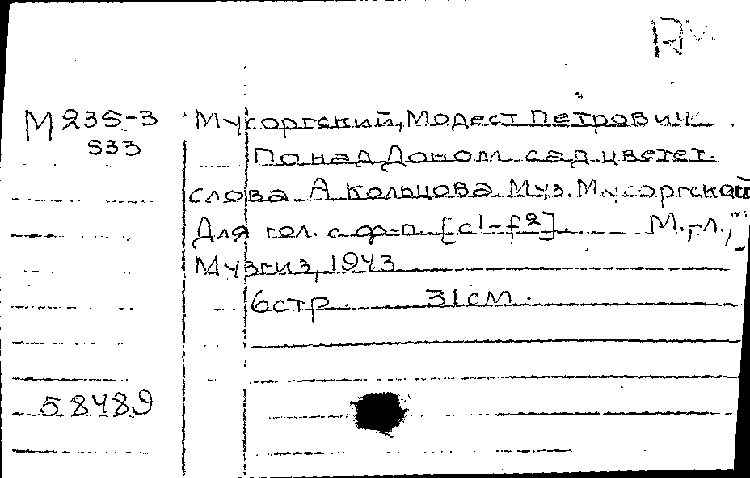 М 235-3 Мусоргский, Модест Петрович.
533 Понад Доном сад цветет.
слова А Кольцова Муз. Мусоргской
Для гол. с ф-п. [c1-f2]. М.-Л.,
Музгиз, 1943
6стр. 31см.
58489